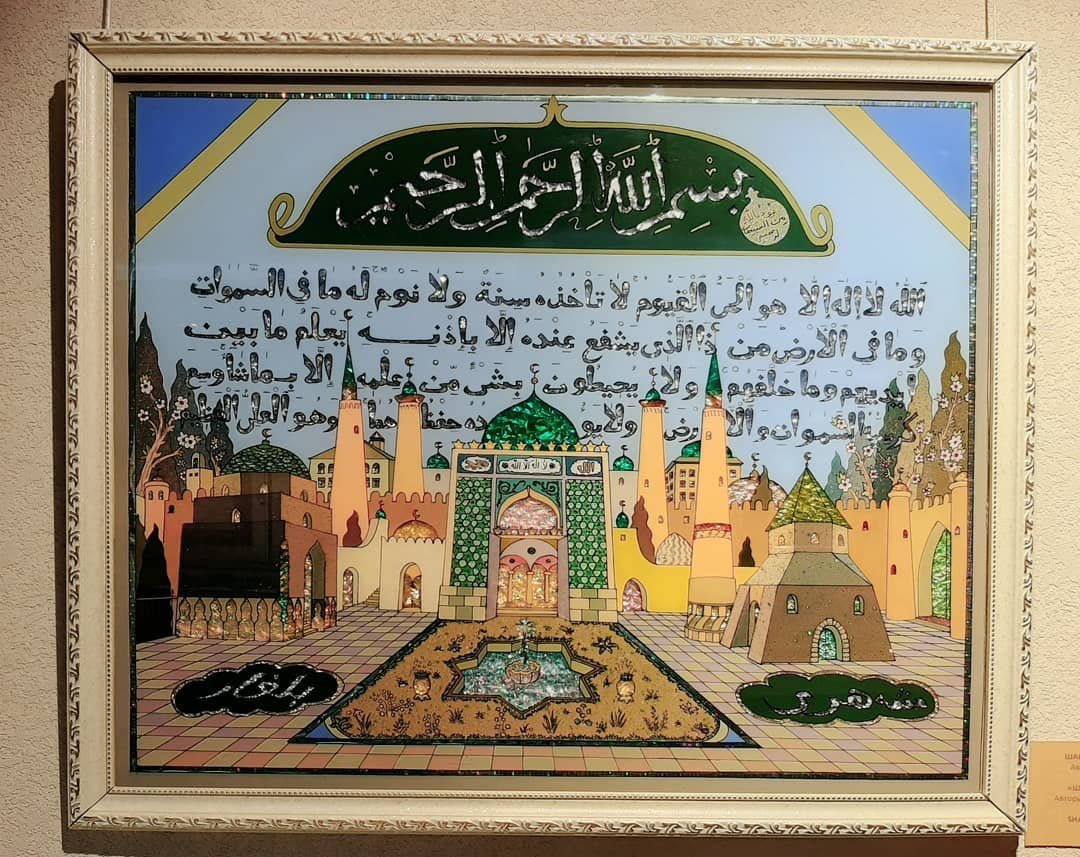 بِسْمِ اللّٰهِ الرَّحْمٰنِ الرَّحِيمِ
اللّٰه لا اله الا هو الحىّ القيوم لا تأخذه سنة ولا نوم له ما فى السموات
وما فى الارض من ذا الذى يشفع عنده الا بإذنه يعلم ما بين
يديهم وما خلفهم ولا يحيطون بشئ من علمه الا بما شا وسع
السموات والارض ولا يو ده حفظهما وهو العلى
الله
لا اله الا الله
شهرى
بلغار